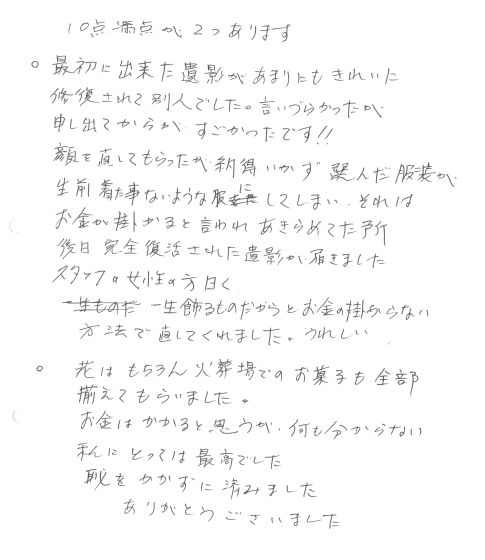 10点満点が2つあります
○ 最初に出来た遺影があまりにもきれいに
修復されて別人でした。言いづらかったが
申し出てからが、すごかったです!!
顔を直してもらったが納得いかず 選んだ服装が、
生前着た事ないような服にしてしまい、それは
お金が掛かると言われ あきらめてた所
後日 完全復活された遺影が届きました
スタッフの女性の方曰く
一生ものだ 一生飾るものだからとお金の掛からない
方法で直してくれました。うれしい
○ 花はもちろん 火葬場でのお菓子も全部
揃えてもらいました。
お金はかかると思うが、何も分からない
私にとっては最高でした
恥をかかずに済みました
ありがとうございました